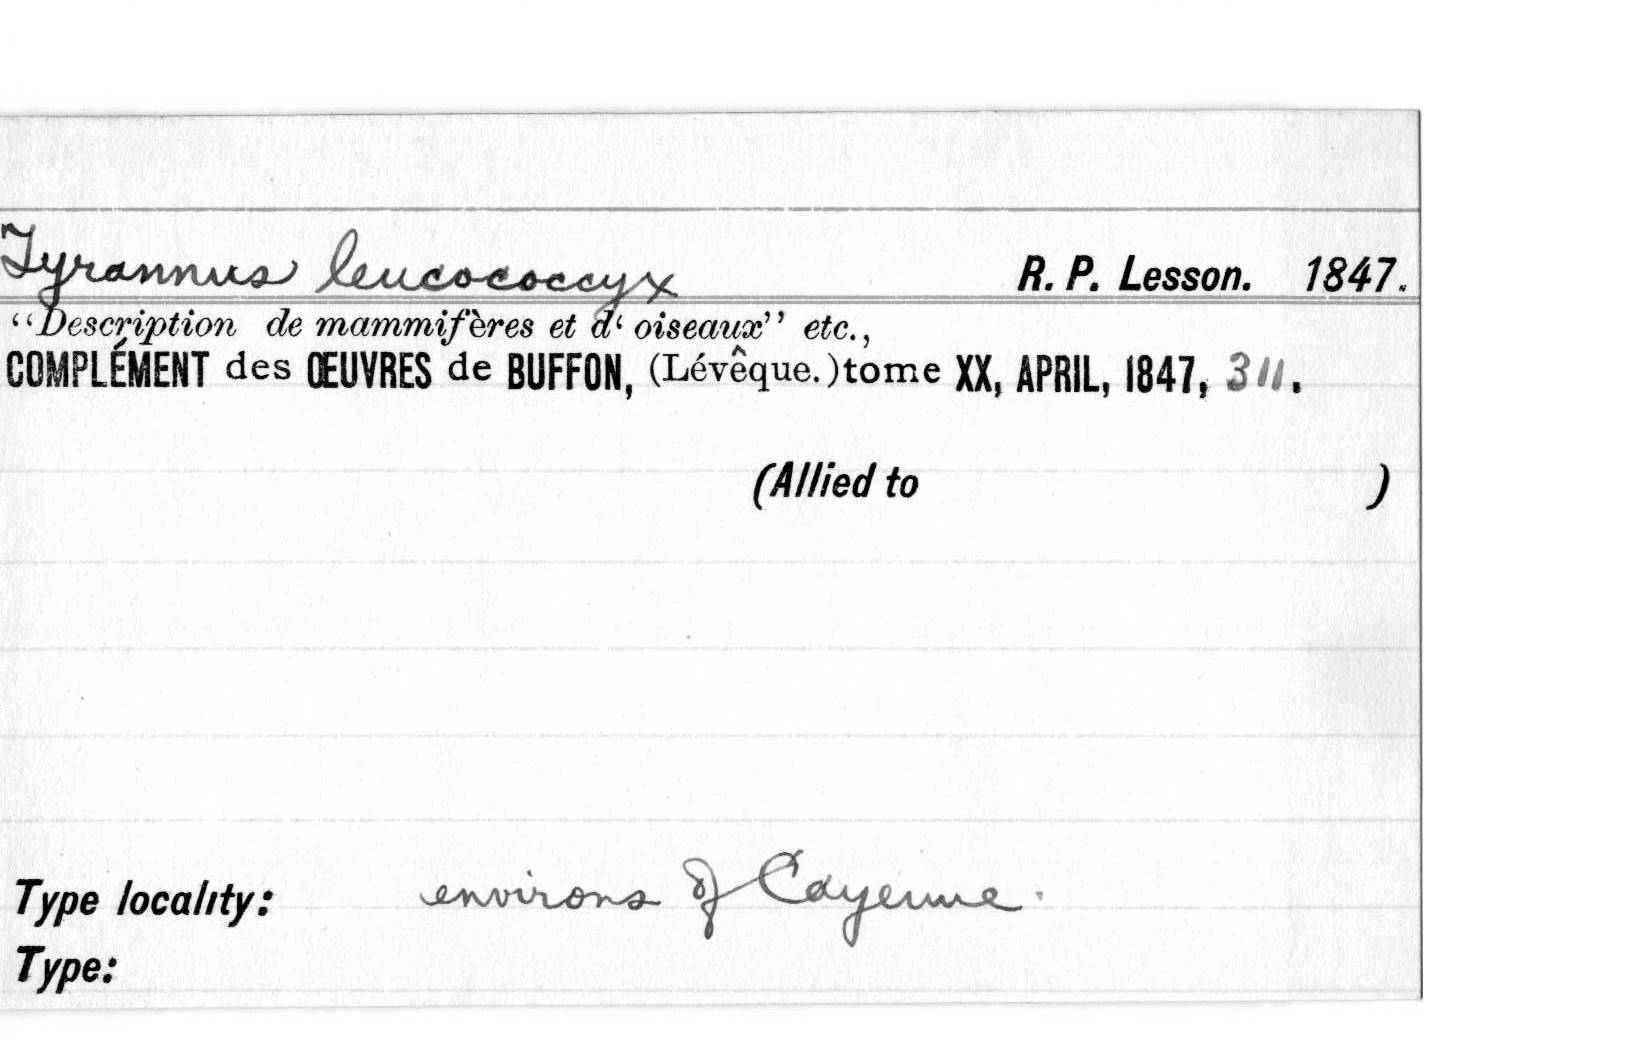 Tyrannus leucococcyx R. P. Lesson. 1847.
“Description de mammifères et d‘ oiseaux” etc.,
COMPLÉMENT des ŒUVRES de BUFFON, (Lévêque.) tome XX, APRIL, 1847, 311.
(Allied to )
Type locality: environs of Cayenne.
Type: